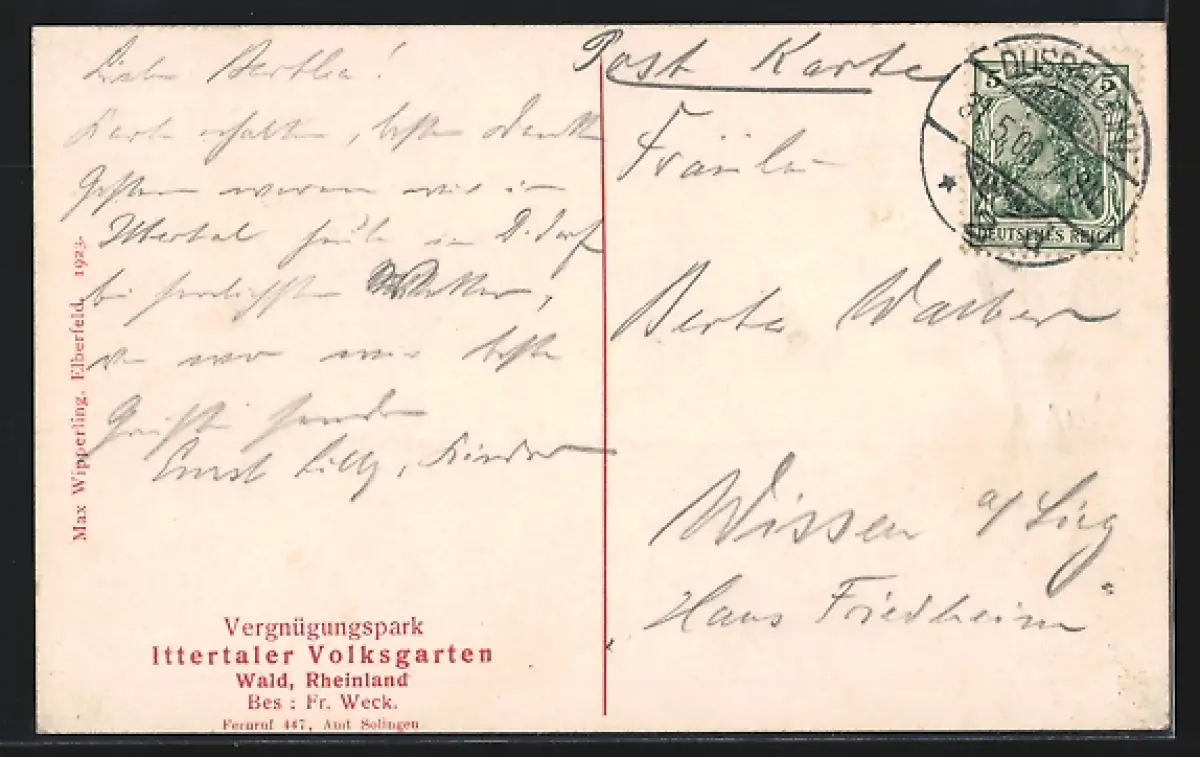 Liebe Bertha!
Karte erhalten, beste Dank
Gestern waren wir in
Ittertal heute in D.dorf
bei herrlichsten Wetter,
beste
Grüße senden
Ernst Lilly, Kinder
Post Karte
Fräulein
Berta
Wissen a/Sieg
„Haus Friedheim“
DÜSSELDORF
31.5.09
5
5
DEUTSCHES REICH
Max Wipperling, Elberfeld. 1923.
Vergnügungspark
Ittertaler Volksgarten
Wald, Rheinland
Bes : Fr. Weck.
Fernruf 447, Amt Solingen